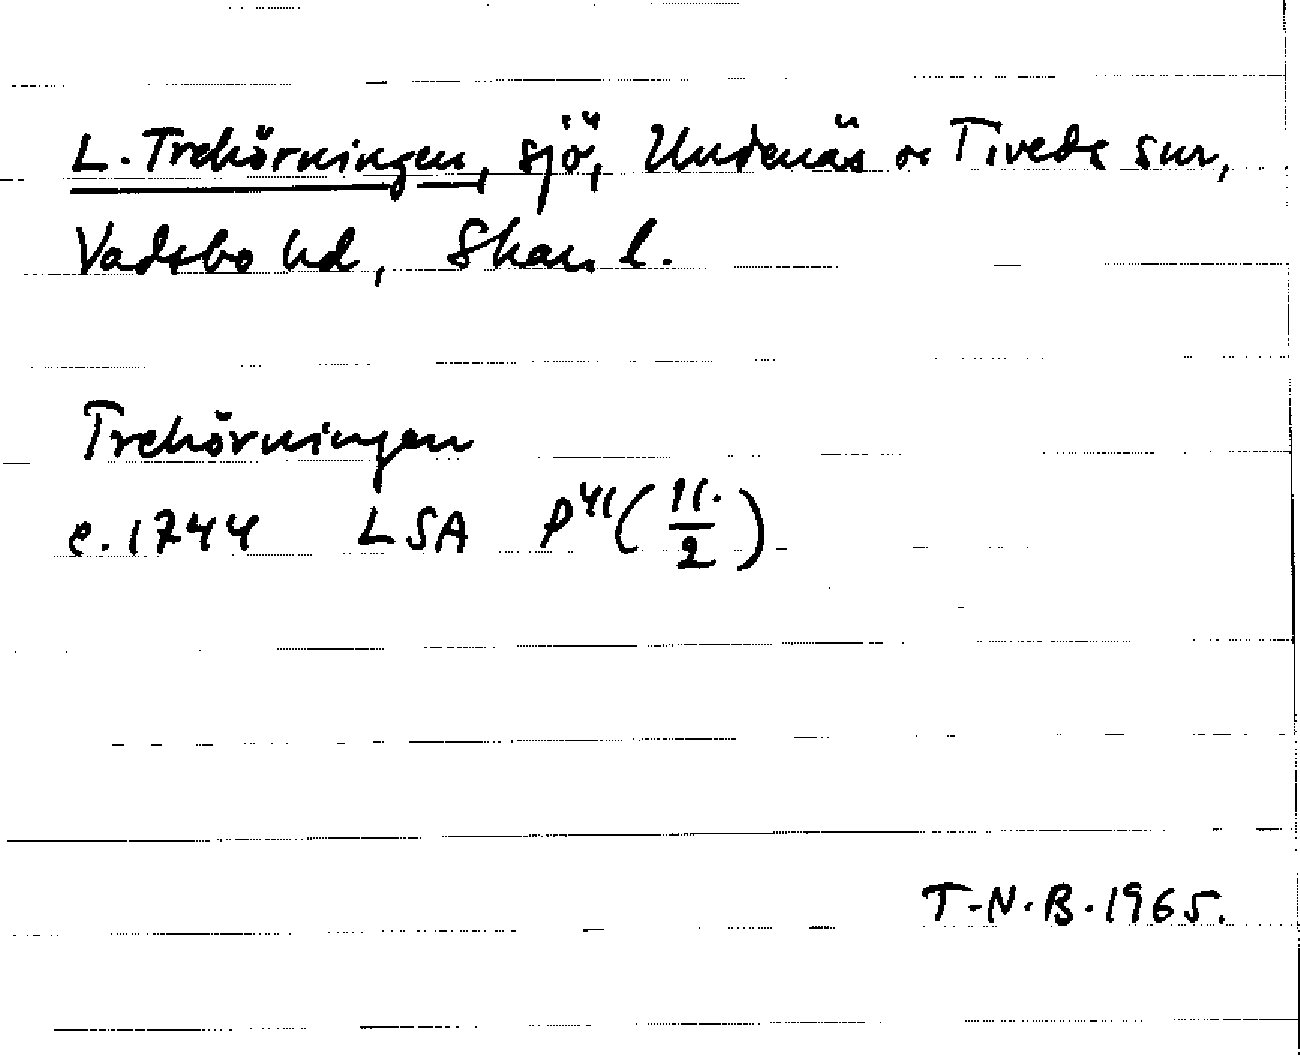 L. Trehörningen, sjö, Undenäs o Tiveds snr,
Vadsbo hd, Skar. l.
Trehörningen
e. 1744 LSA P41 (11./2)
T.N.B. 1965.